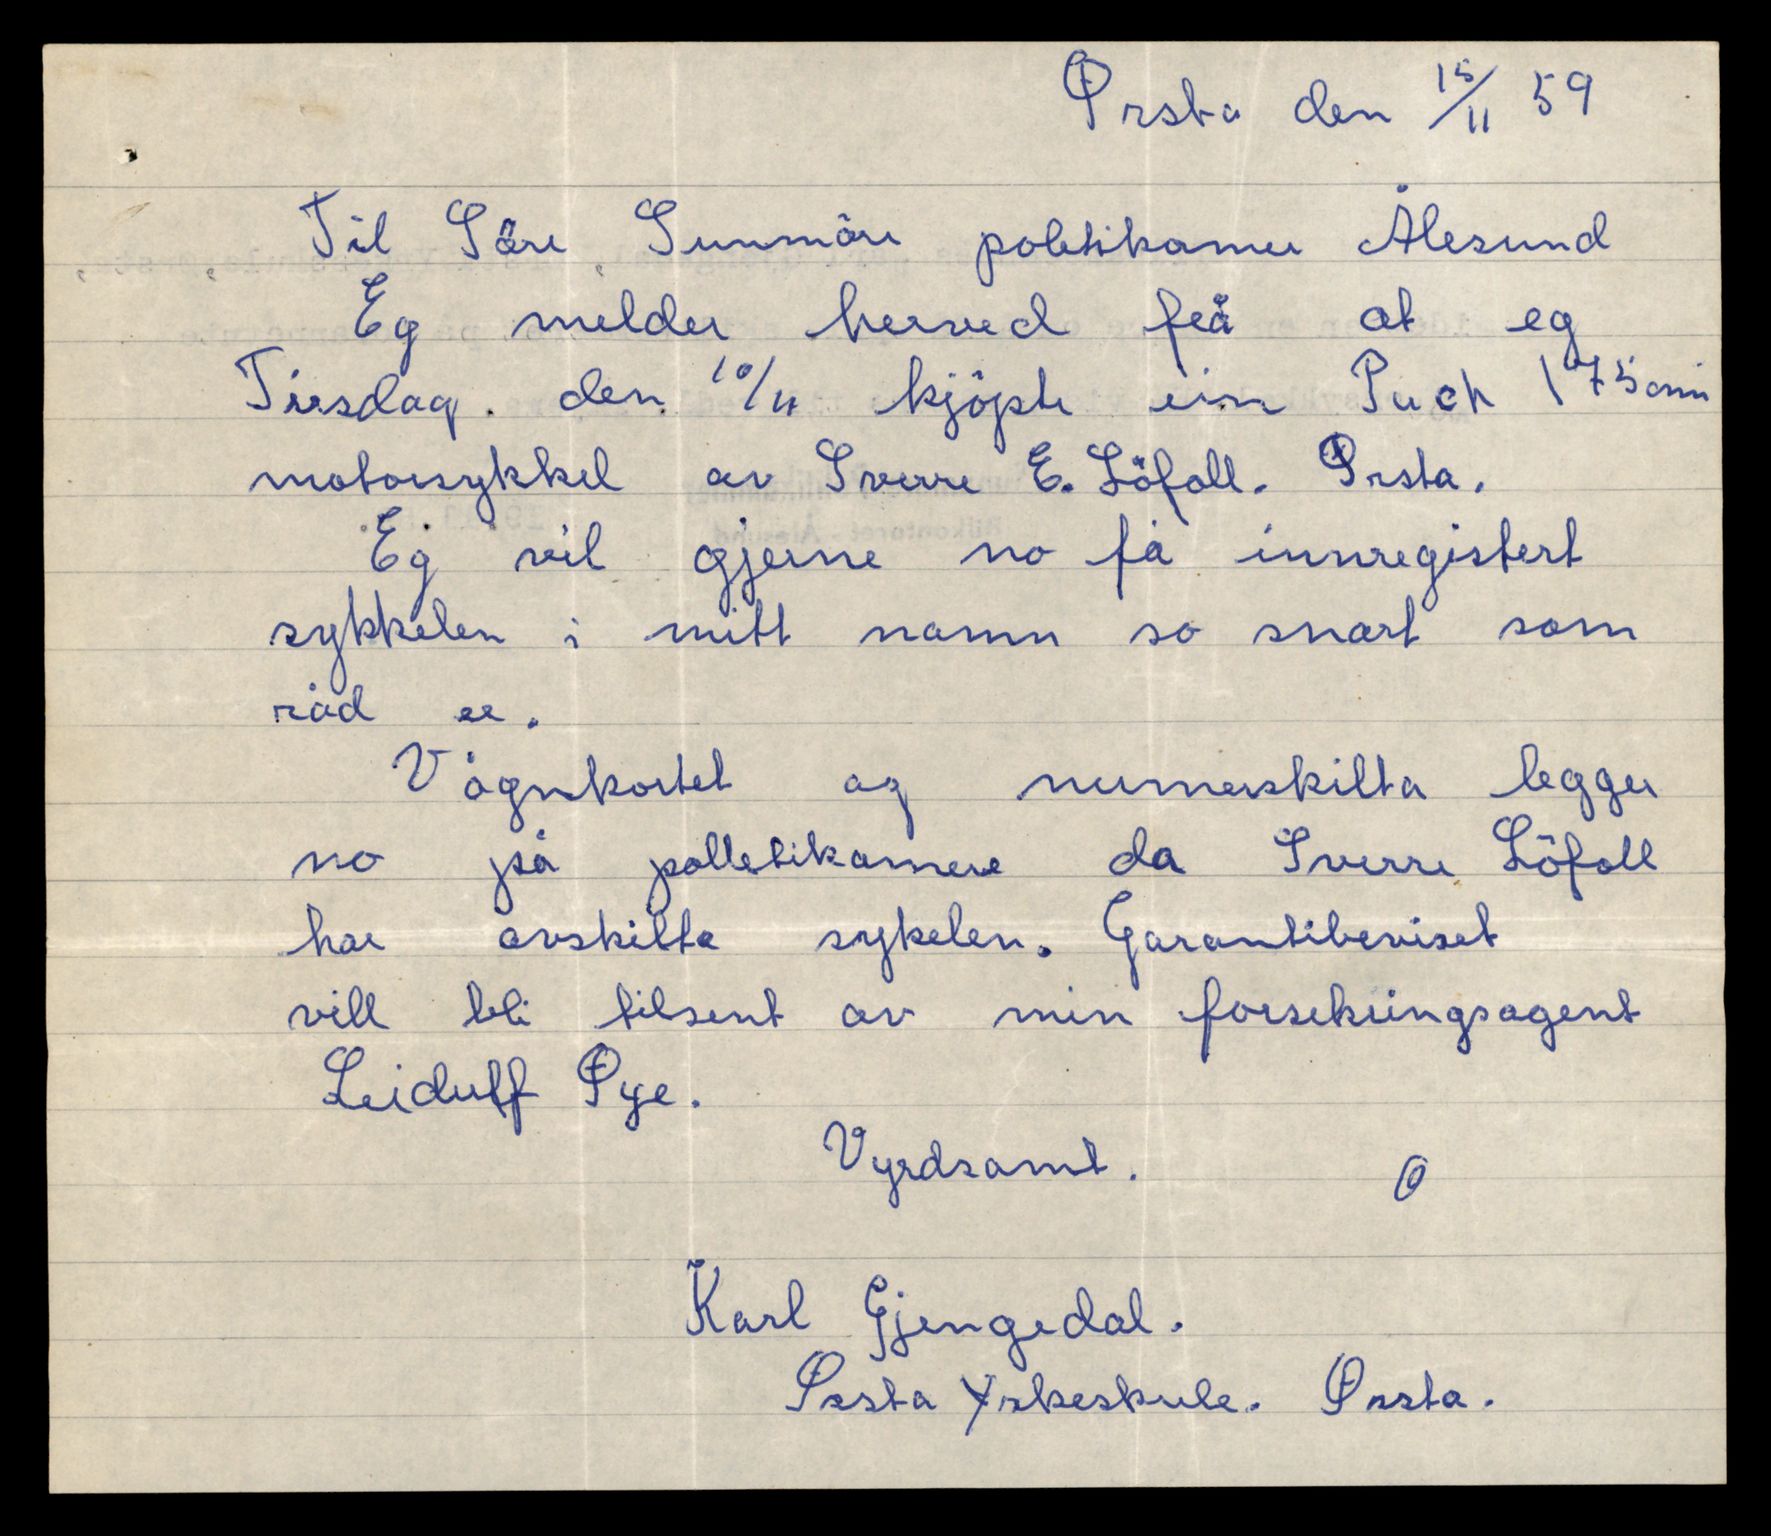 Ørsta den 15/11 59
Til Söre Sunnmöre politikamer Ålesund
Eg melder herved frå at eg
Tirsdag. den 10/11 kjöpte ein Puch 175 cm
motorsykkel av Sverre E. Löfoll. Ørsta.
Eg vil gjerne no få innregistert
sykkelen i mitt namn so snart som
råd er.
Vognkortet og numerskilta legger
no på polletikamere da Sverre Löfoll
har avskilta sykelen. Garantibeviset
vill bli tilsent av min forsekringsagent
Leidulf Øye.
Vyrdsamt.
Karl Gjengedal.
Ørsta Yrkeskule. Ørsta.